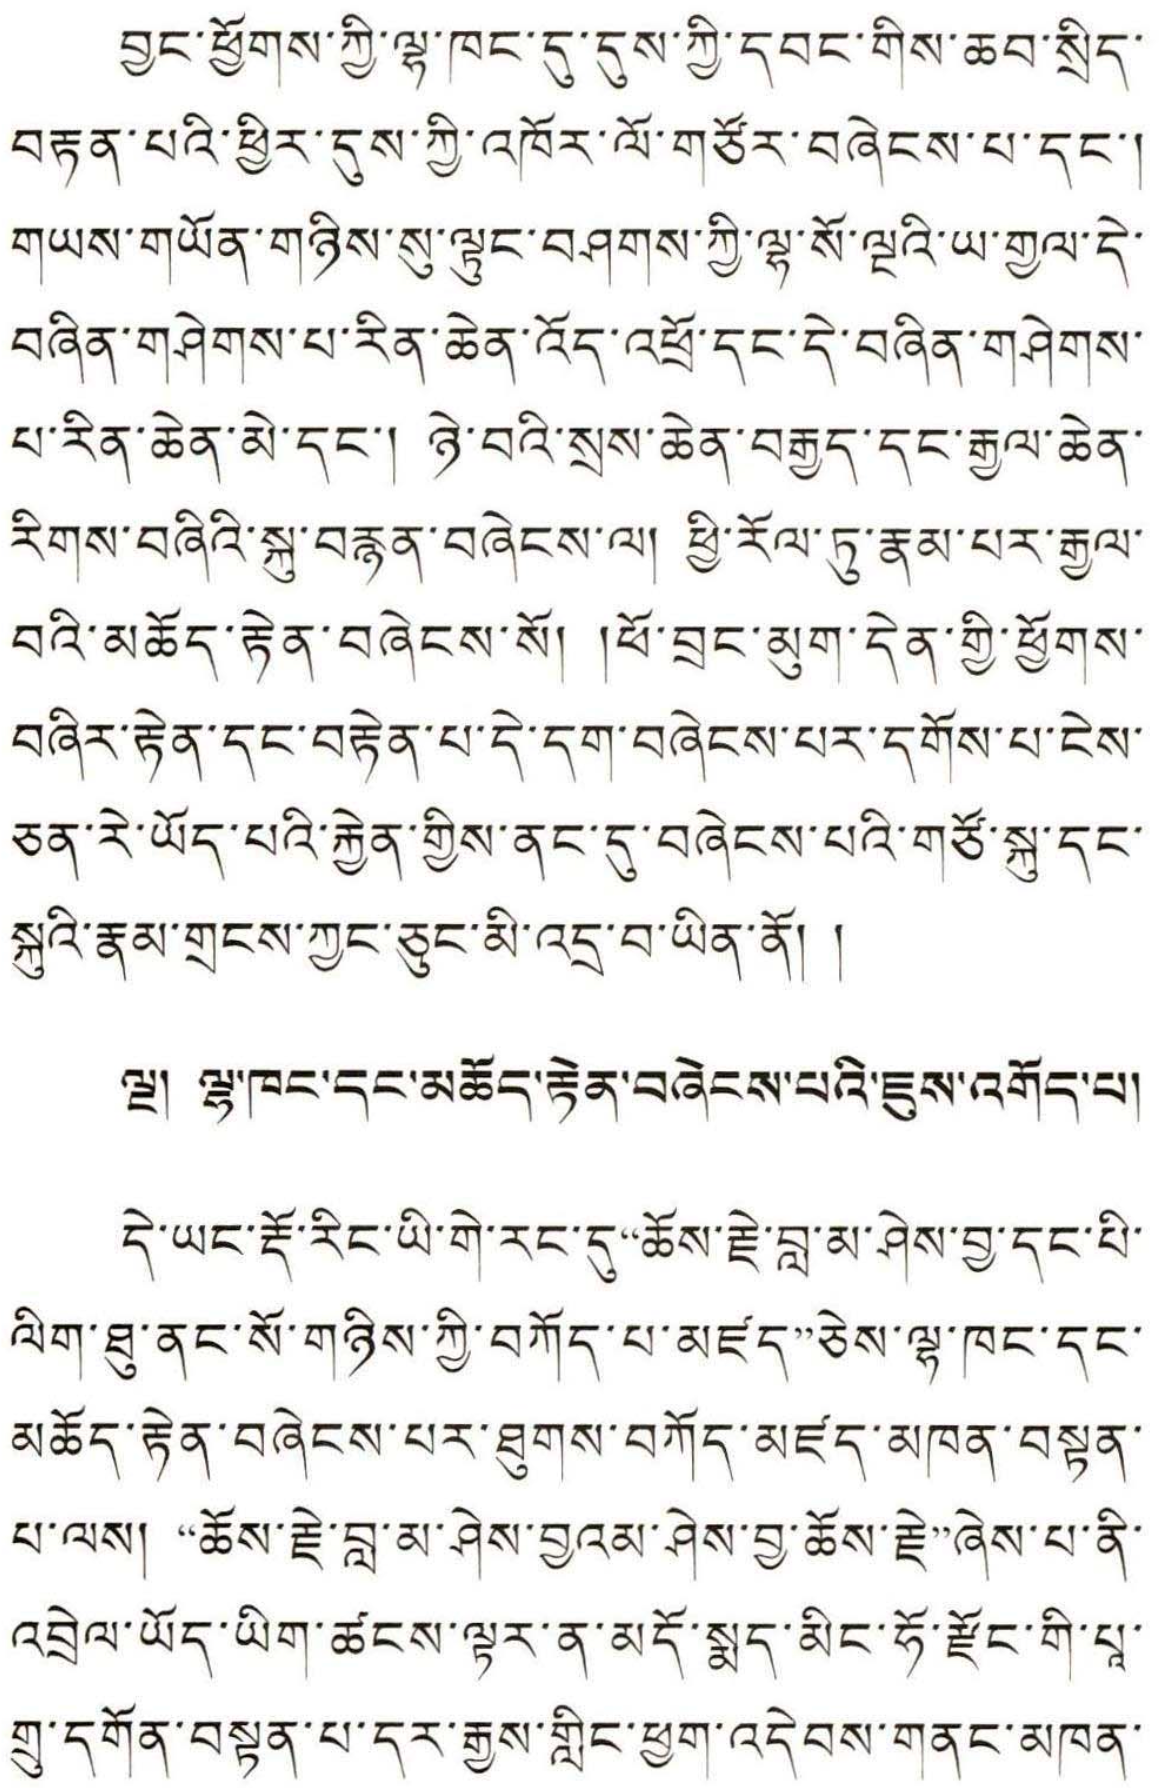 བྱང་ཕྱོགས་ཀྱི་ལྷ་ཁང་དུ་དུས་ཀྱི་དབང་གིས་ཆབ་སྲིད་
བརྟན་པའི་ཕྱིར་དུས་ཀྱི་འཁོར་ལོ་གཙོར་བཞེངས་པ་དང་།
གཡས་གཡོན་གཉིས་སུ་ལྟུང་བཤགས་ཀྱི་ལྷ་སོ་ལྔའི་ཡ་གྱལ་དེ་
བཞིན་གཤེགས་པ་རིན་ཆེན་འོད་འཕྲོ་དང་དེ་བཞིན་གཤེགས་
པ་རིན་ཆེན་མེ་དང་། ཉེ་བའི་སྲས་ཆེན་བརྒྱད་དང་རྒྱལ་ཆེན་
རིགས་བཞིའི་སྐུ་བརྙན་བཞེངས་ལ། ཕྱི་རོལ་ཏུ་རྣམ་པར་རྒྱལ་
བའི་མཆོད་རྟེན་བཞེངས་སོ། །ཕོ་བྲང་མུག་དེན་གྱི་ཕྱོགས་
བཞིར་རྟེན་དང་བརྟེན་པ་དེ་དག་བཞེངས་པར་དགོས་པ་ངེས་
ཅན་རེ་ཡོད་པའི་རྐྱེན་གྱིས་ནང་དུ་བཞེངས་པའི་གཙོ་སྐུ་དང་
སྐུའི་རྣམ་གྲངས་ཀྱང་ཅུང་མི་འདྲ་བ་ཡིན་ནོ། །
ལྔ། ལྷ་ཁང་དང་མཆོད་རྟེན་བཞེངས་པའི་ཇུས་འགོད་པ།
དེ་ཡང་རྡོ་རིང་ཡི་གེ་རང་དུ“ཆོས་རྗེ་བླ་མ་ཤེས་བྱ་དང་པི་
ལིག་ཐུ་ནང་སོ་གཉིས་ཀྱི་བཀོད་པ་མཛད”ཅེས་ལྷ་ཁང་དང་
མཆོད་རྟེན་བཞེངས་པར་ཐུགས་བཀོད་མཛད་མཁན་བསྟན་
པ་ལས། “ཆོས་རྗེ་བླ་མ་ཤེས་བྱའམ་ཤེས་བྱ་ཆོས་རྗེ”ཞེས་པ་ནི་
འབྲེལ་ཡོད་ཡིག་ཚངས་ལྟར་ན་མདོ་སྨད་མིང་ཧོ་རྫོང་གི་པཱ་
གྲུ་དགོན་བསྟན་པ་དར་རྒྱས་གླིང་ཕྱག་འདེབས་གནང་མཁན་